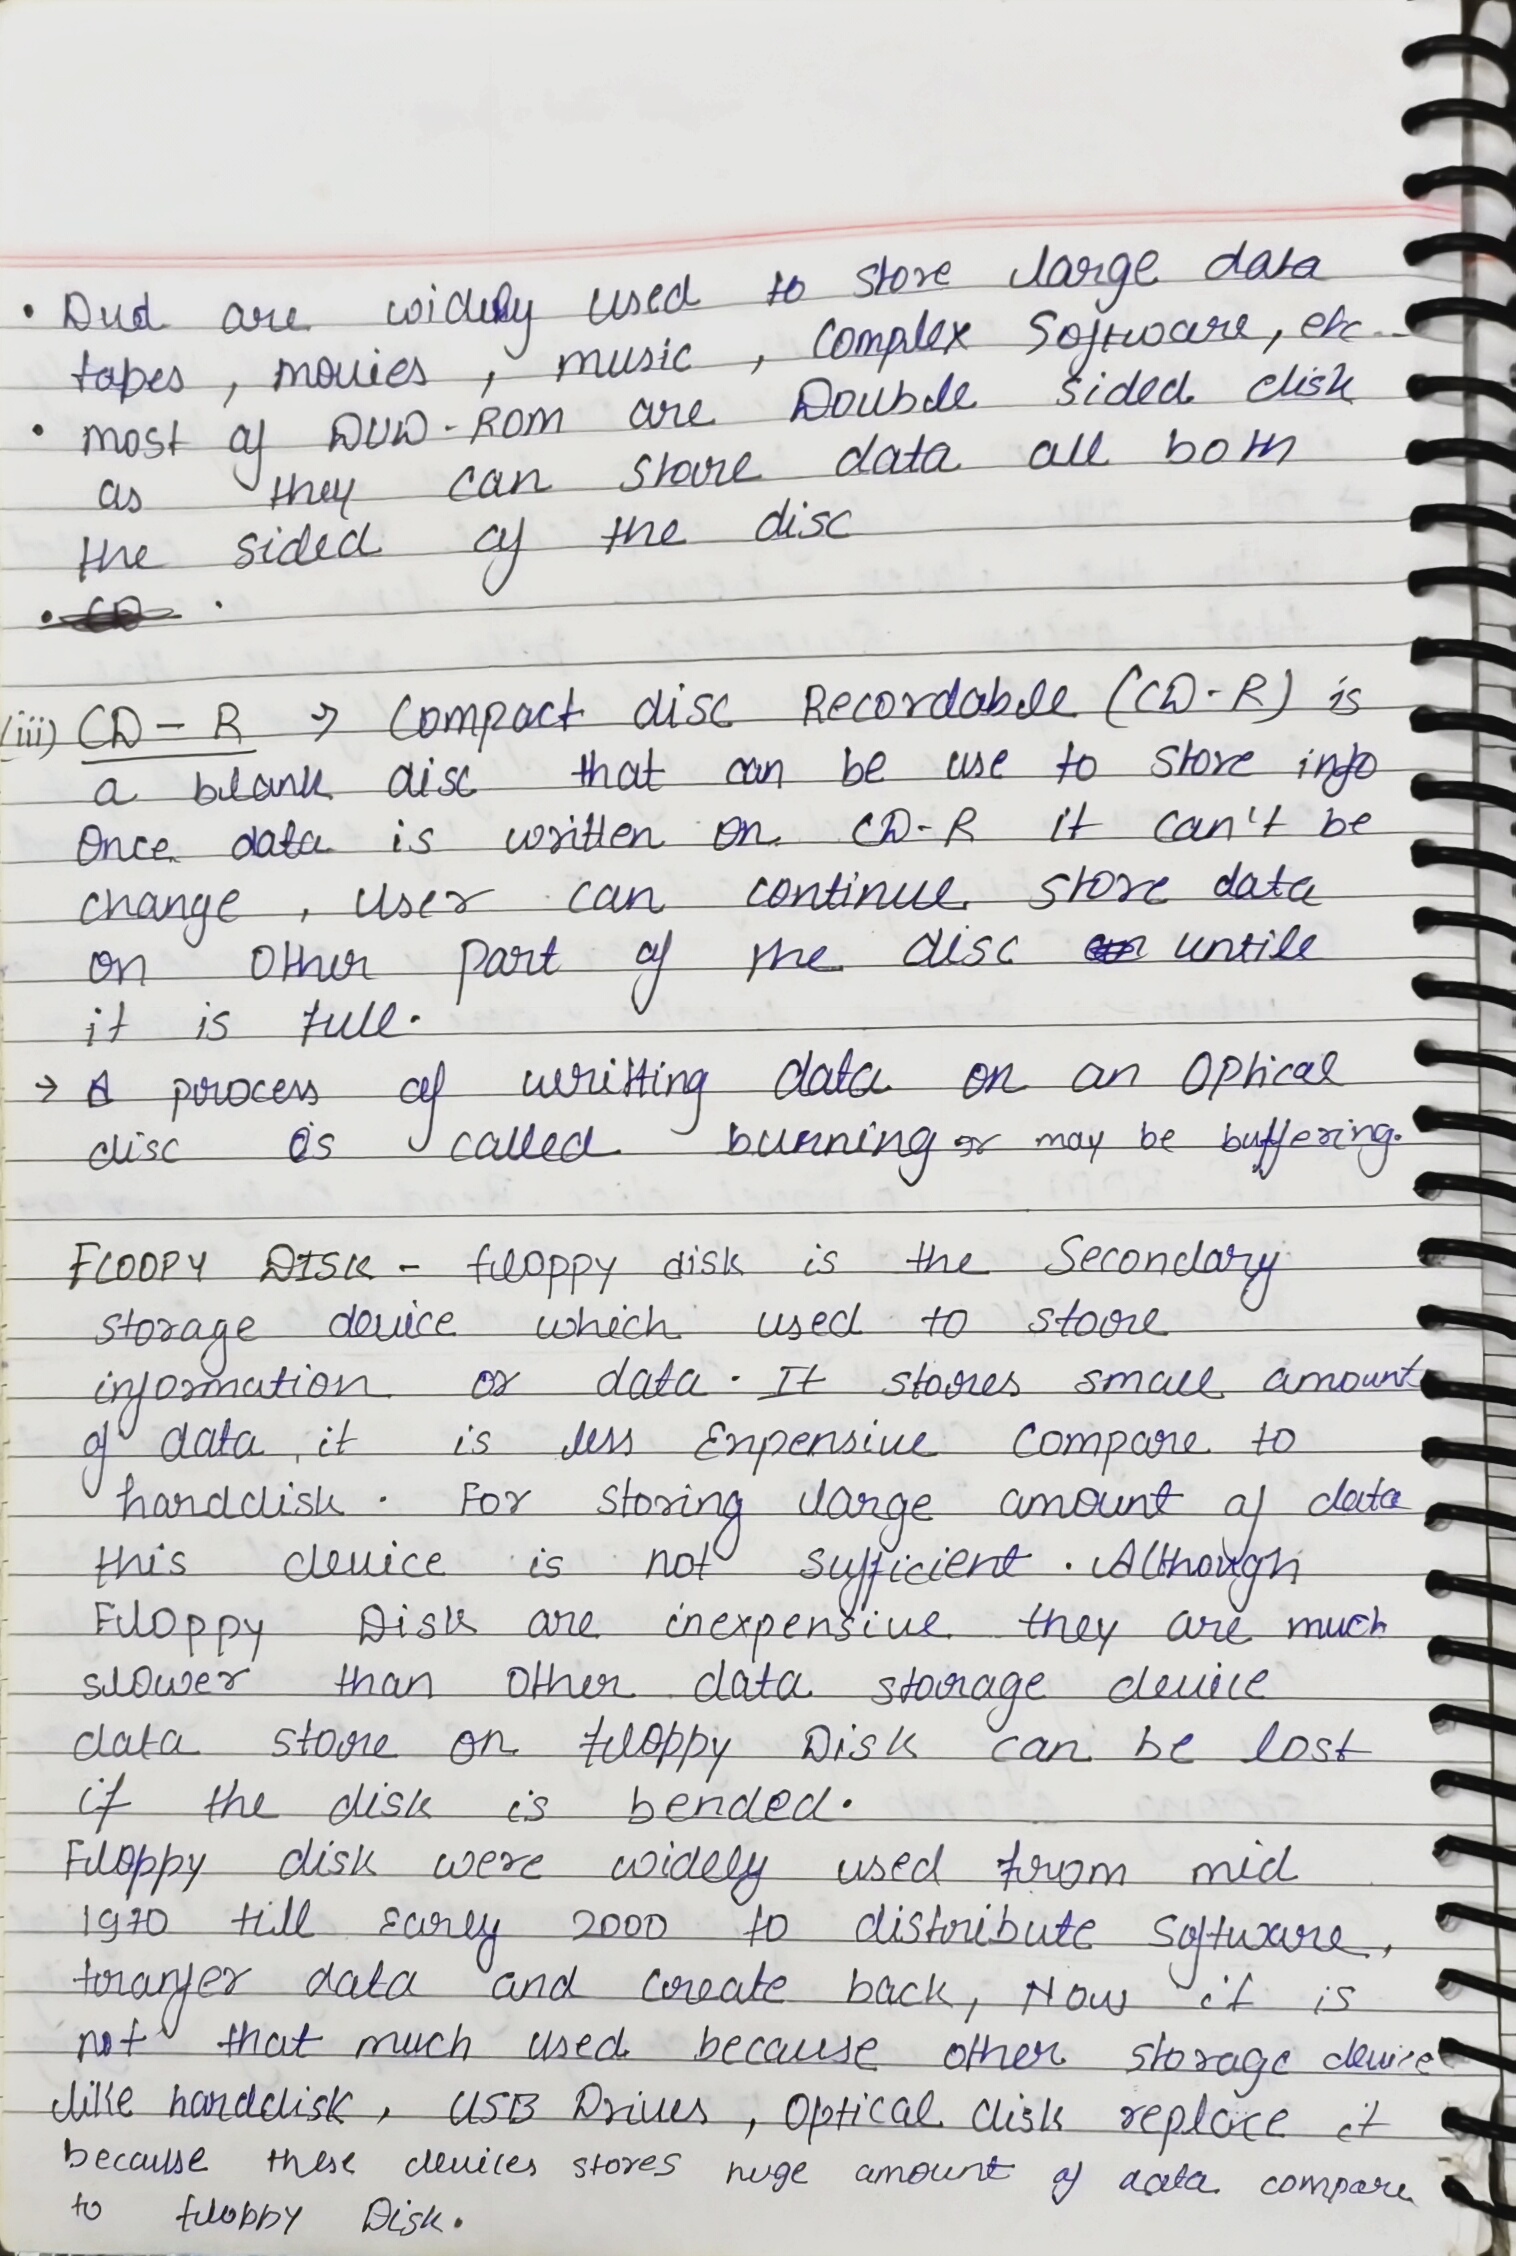 • Dvd are widely used to store large data
tapes, movies, music, complex Software, etc..
• most of DVD-ROM are Double sided disk
as they can store data all both
the sided of the disc
• CD .
(iii) CD-R → Compact disc Recordable (CD-R) is
a blank disc that can be use to store info
Once data is written on CD-R it can't be
change, user can continue store data
on other part of the disc untill
it is full.
→ A process of writting data on an Optical
disc is called burning or may be buffering.
FLOOPY DISK - floppy disk is the Secondary
storage device which used to store
information or data. It stores small amount
of data, it is less Expensive Compare to
harddisk. For storing large amount of data
this device is not sufficient. Although
Floppy Disk are inexpensive they are much
slower than other data storage device
data store on floppy Disk can be lost
if the disk is bended.
Floppy disk were widely used from mid
1970 till Early 2000 to distribute Software,
tranfer data and create back, Now it is
not that much used because other storage device
like harddisk, USB Drives, Optical disk replace it
because these devices stores huge amount of data compare
to floppy Disk.